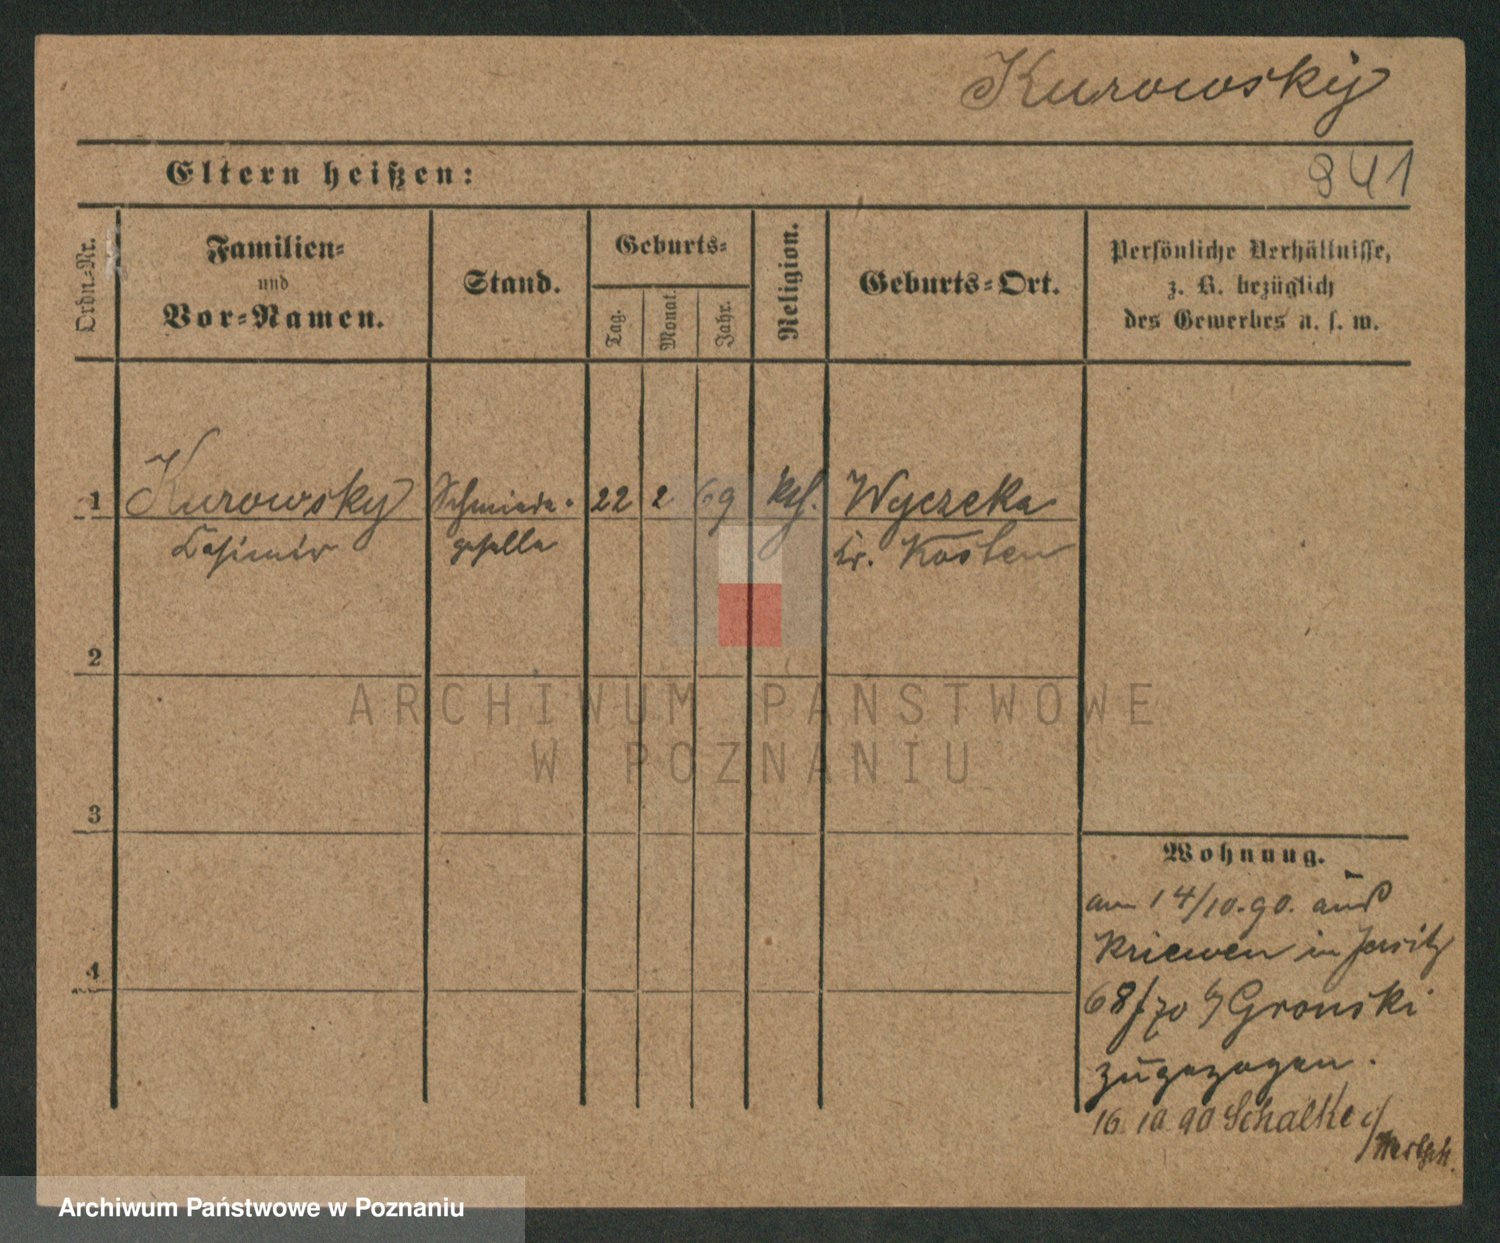 Kurowsky
941
Eltern heißen:
Ordn.=Nr.
Familien=
und
Vor=Namen.
Stand.
Geburts=
Tag.
Monat.
Jahr.
Religion.
Geburts=Ort.
Persönliche Verhältnisse,
z. B. bezüglich
des Gewerbes u. s. w.
1 Kurowsky Schmiede= 22 2 69 kth. Wyczeka
Casimir geselle Kr. Kosten
2
ARCHIWUM PAŃSTWOWE
W POZNANIU
3
Wohnung.
am 14/10.90. aus
Kriewen in Jersitz
4
68/70 b/ Gronski
zugezogen.
16 10 90 Schalke
Archiwum Państwowe w Poznaniu